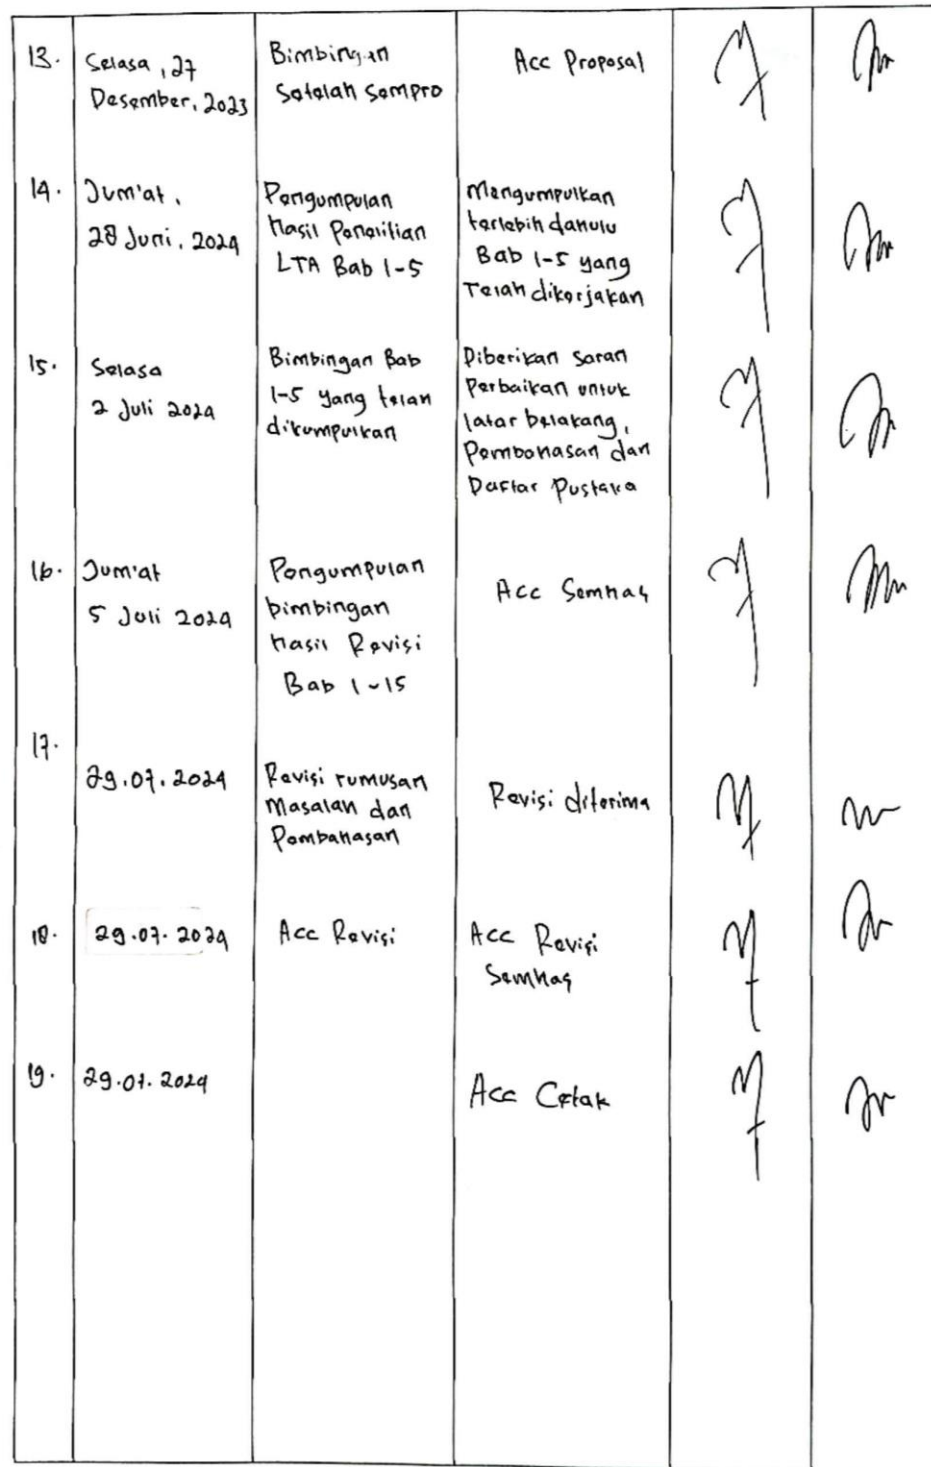 13.
Selasa, 27
Desember, 2023
Bimbingan
Setelah Sempro
Acc Proposal
14.
Jum'at,
28 Juni, 2024
Pengumpulan
Hasil Penelitian
LTA Bab 1-5
Mengumpulkan
terlebih dahulu
Bab 1-5 yang
Telah dikerjakan
15.
Selasa
2 Juli 2024
Bimbingan Bab
1-5 yang telah
dikumpulkan
Diberikan saran
Perbaikan untuk
latar belakang,
Pembahasan dan
Daftar Pustaka
16.
Jum'at
5 Juli 2024
Pengumpulan
bimbingan
Hasil Revisi
Bab 1-15
Acc Semhas
17.
29.07.2024
Revisi rumusan
Masalah dan
Pembahasan
Revisi diterima
18.
29.07.2024
Acc Revisi
Acc Revisi
Semhas
19.
29.07.2024
Acc Cetak